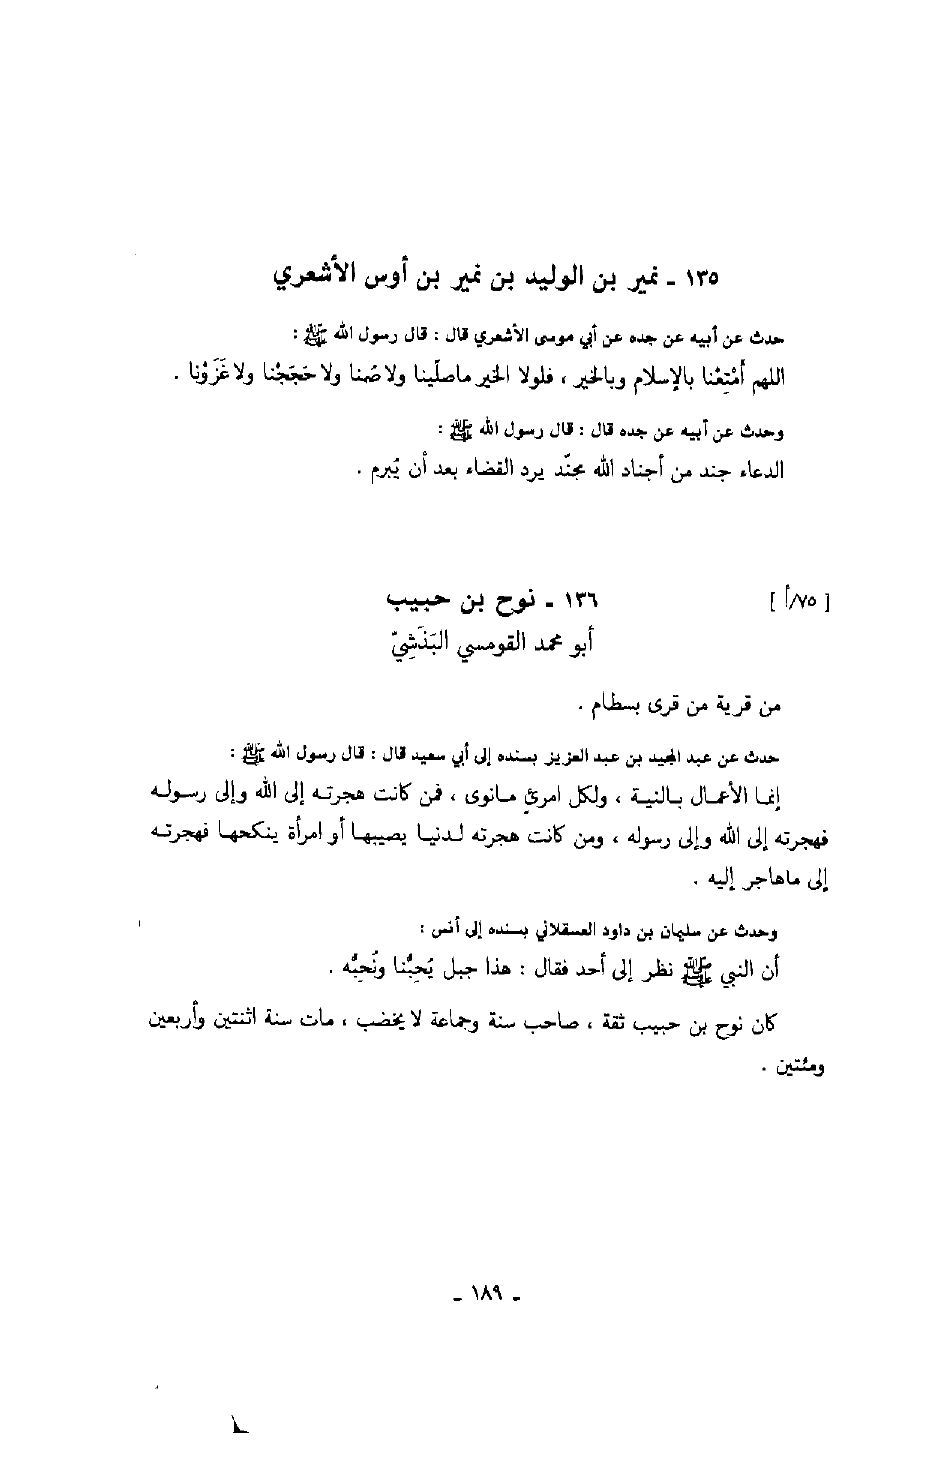 ١٣٥ ـ نمير بن الوليد بن نمير بن أوس الأشعري
حدث عن أبيه عن جده عن أبي موسى الأشعري قال : قال رسول الله ﷺ :
اللهم أَمْتِعْنا بالإسلام وبالخير ، فلولا الخير ماصلّينا ولا صُمنا ولا حَجَجْنا ولا غَزَوْنا .
وحدث عن أبيه عن جده قال : قال رسول الله ﷺ :
الدعاء جند من أجناد الله مجنّد يرد القضاء بعد أن يُبرم .
[ ٧٥/أ ] ١٣٦ ـ نوح بن حبيب
أبو محمد القومسي البَذَشِيّ
من قرية من قرى بسطام .
حدث عن عبد المجيد بن عبد العزيز بسنده إلى أبي سعيد قال : قال رسول الله ﷺ :
إنما الأعمال بالنية ، ولكل امرئٍ مانوى ، فمن كانت هجرته إلى الله وإلى رسوله
فهجرته إلى الله وإلى رسوله ، ومن كانت هجرته لدنيا يصيبها أو امرأة ينكحها فهجرته
إلى ماهاجر إليه .
وحدث عن سليمان بن داود العسقلاني بسنده إلى أنس :
أن النبي ﷺ نظر إلى أحد فقال : هذا جبل يُحِبُّنا ونُحِبُّه .
كان نوح بن حبيب ثقة ، صاحب سنة وجماعة لا يخضب ، مات سنة اثنتين وأربعين
ومئتين .
ـ ١٨٩ ـ